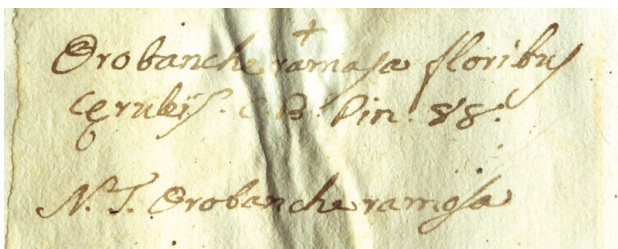 +
Orobanche ramosa floribus
Cęruleis. C.B. Pin. 88.
N.T. Orobanche ramosa